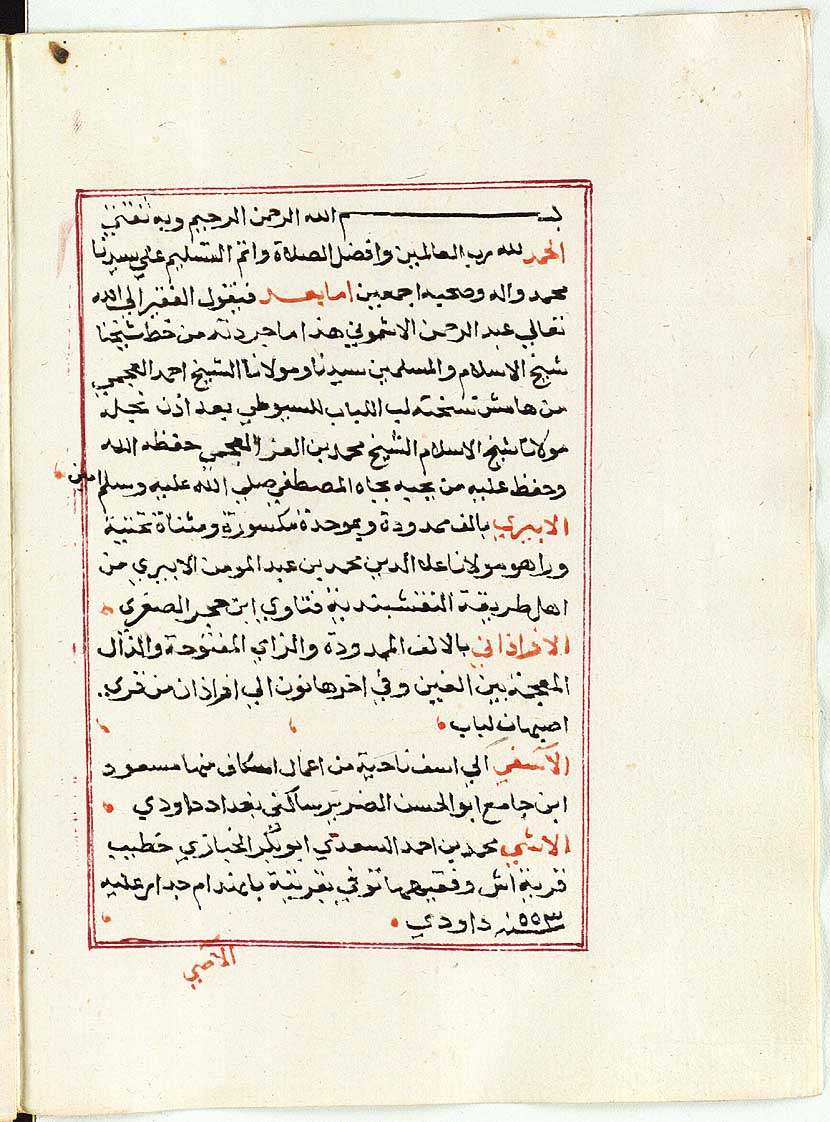 بسم الله الرحمن الرحيم وبه ثقتي
الحمد لله رب العالمين وافضل الصلاة واتم التسليم علي سيدنا
محمد واله وصحبه اجمعين اما بعد فيقول الفقير الي الله
تعالي عبد الرحمن الاشموني هذا ما جردته من خط شيخنا
شيخ الاسلام والمسلمين سيدنا ومولانا الشيخ احمد العجمي
من هامش نسخته لب اللباب للسيوطي بعد اذن نجله
مولانا شيخ الاسلام الشيخ محمد بن العز العجمي حفظه الله
وحفظ عليه من يحبه بجاه المصطفي صلي الله عليه وسلم امين
الابيري بالف ممدودة وبموحدة مكسورة ومثناة تحتية
وراهو مولانا علا الدين محمد بن عبد المومن الابيري من
اهل طريقة النقشبندية فتاوي ابن حجر الصغري
الافراذاني بالالف الممدودة والزاي المفتوحة والذال
المعجمة بين الفين وفي اخرها نون الي افراذان من قري
اصبهان لباب
الآسفي الي اسف ناحية من اعمال اسكاف منها مسعود
ابن جامع ابو الحسن الضرير ساكني بغداد داودي
الاشي محمد بن احمد السعدي ابو بكر الخبازي خطيب
قرية اش وفقيهها توفي بقرية
سنة ٥٥٣ داودي
الآصي